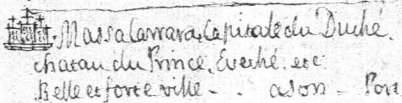 Massa Carrara, Capitale du Duché.
chatau du Prince, Evéché. etc.
Belle et forte ville - . a son - Port